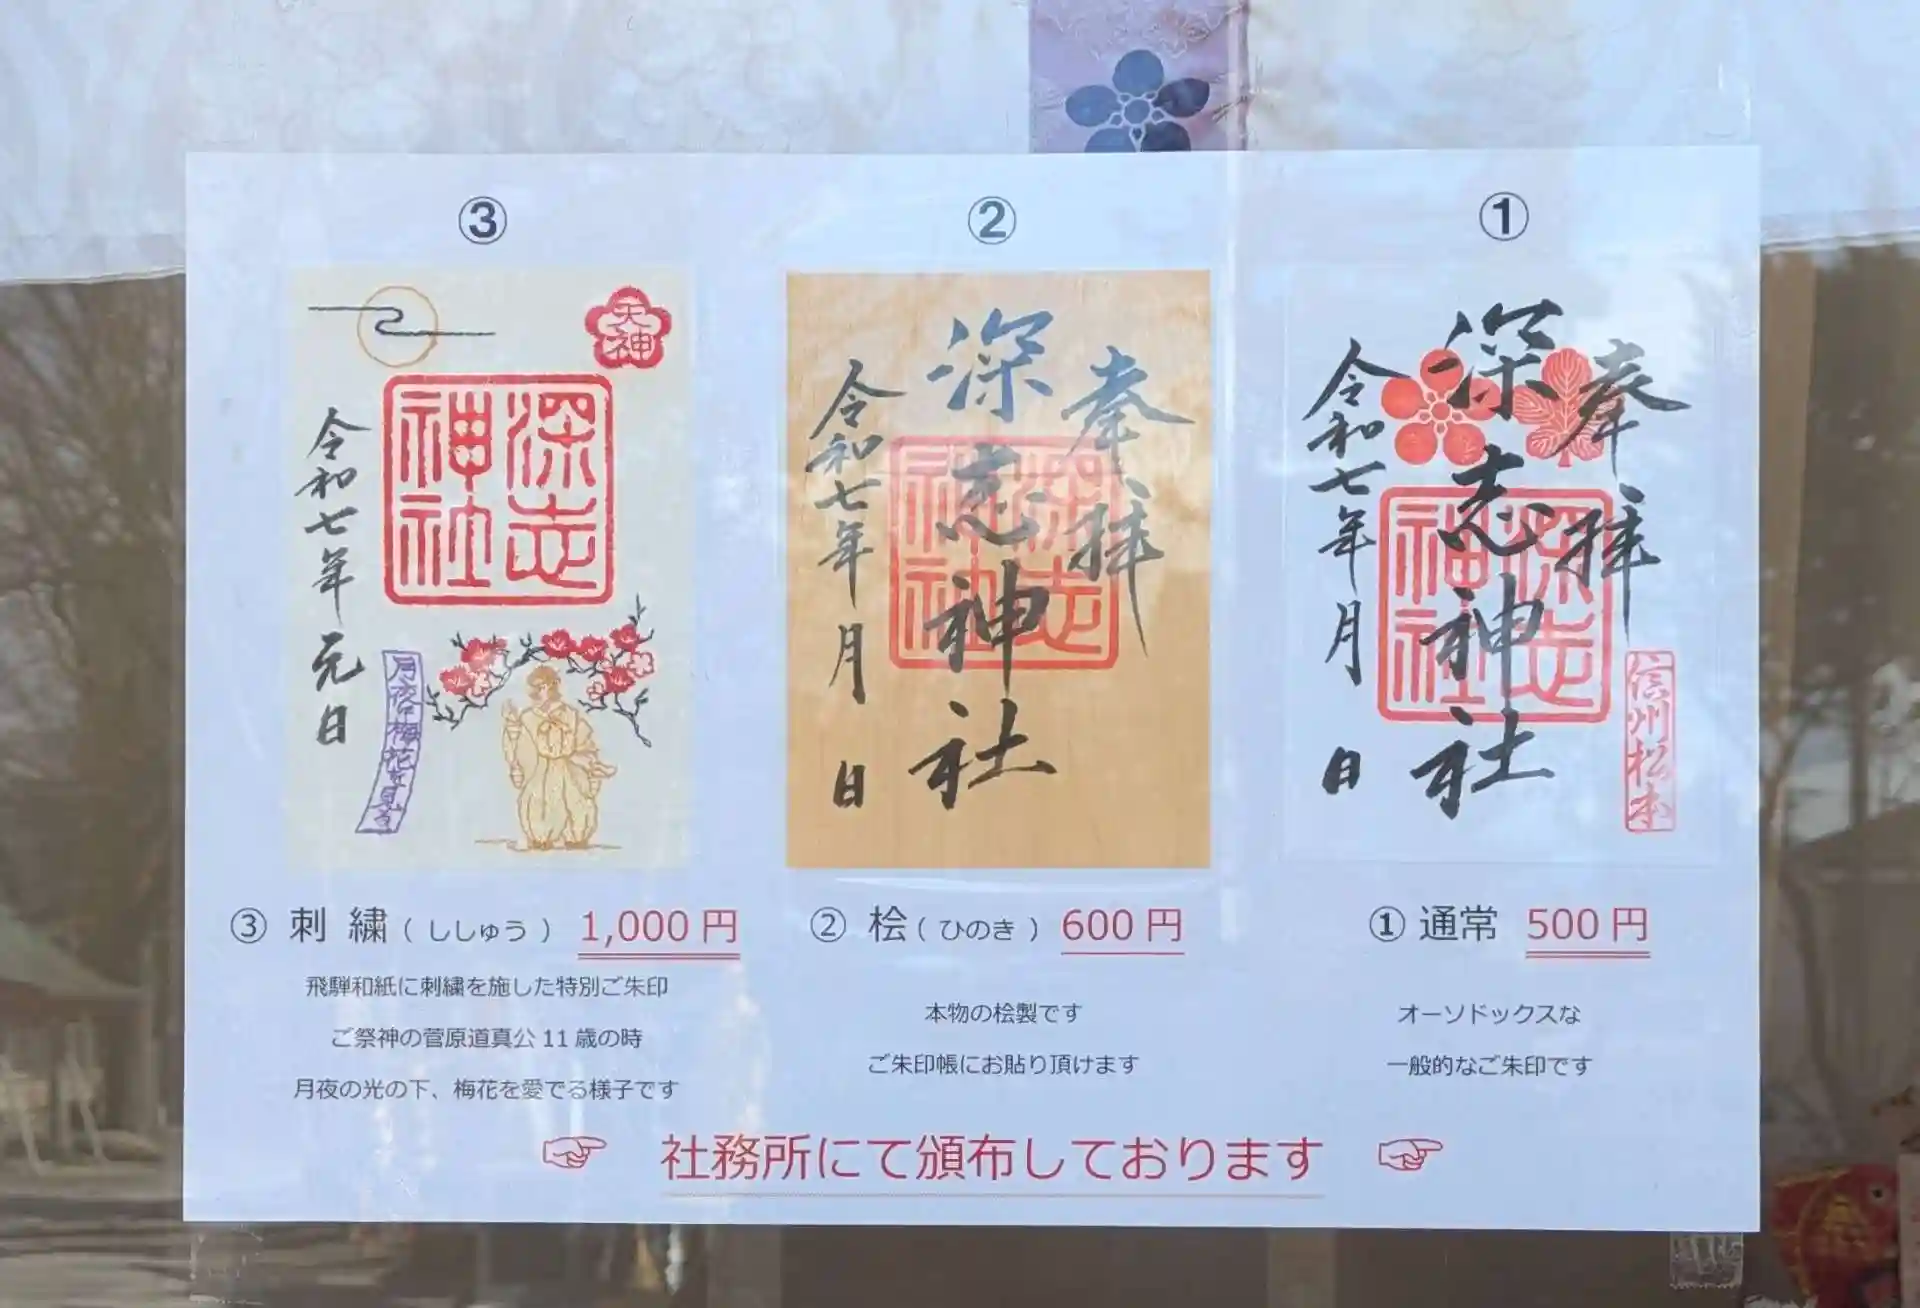 ①
奉拝
深志神社
深志神社
令和七年 月 日
信州松本
① 通常 500 円
オーソドックスな
一般的なご朱印です
②
奉拝
深志神社
深志神社
令和七年 月 日
② 桧（ひのき） 600 円
本物の桧製です
ご朱印帳にお貼り頂けます
③
天神
深志神社
令和七年 元日
月夜に梅花を見る
③ 刺 繍（ししゅう） 1,000 円
飛騨和紙に刺繍を施した特別ご朱印
ご祭神の菅原道真公 11 歳の時
月夜の光の下、梅花を愛でる様子です
☞ 社務所にて頒布しております ☞